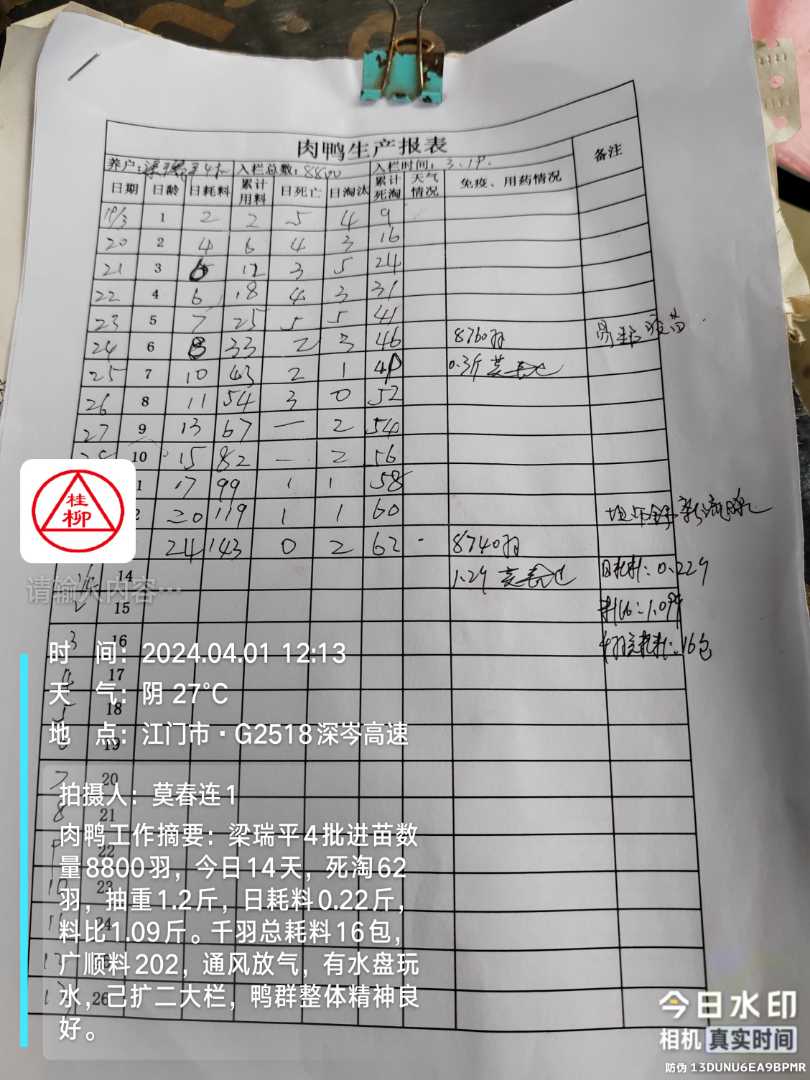 肉鸭生产报表
养户：梁瑞平4批 入栏总数：8800 入栏时间：3.19. 备注
日期 日龄 日耗料 累计用料 日死亡 日淘汰 累计死淘 天气情况 免疫、用药情况
19/3 1 2 2 5 4 9
20 2 4 6 4 3 16
21 3 6 12 3 5 24
22 4 6 18 4 3 31
23 5 7 25 5 5 41
24 6 8 33 2 3 46 8760羽
25 7 10 43 2 1 49 0.3斤
26 8 11 54 3 0 52
27 9 13 67 — 2 54
10 15 82 — 2 56
1 17 99 1 1 58
2 20 119 1 1 60
24 143 0 2 62 8740羽
14 日耗料：0.229
15 料比：1.09
3 16 16包
17
5 18
19
7 20
8 21
9 22
10 23
11 24
12
13 26
桂柳
请输入内容…
时 间：2024.04.01 12:13
天 气：阴 27°C
地 点：江门市·G2518深岑高速
拍摄人：莫春连1
肉鸭工作摘要：梁瑞平4批进苗数
量8800羽，今日14天，死淘62
羽，抽重1.2斤，日耗料0.22斤，
料比1.09斤。千羽总耗料16包，
广顺料202，通风放气，有水盘玩
水，己扩二大栏，鸭群整体精神良
好。
今日水印
相机 真实时间
防伪 13DUNU6EA9BPMR